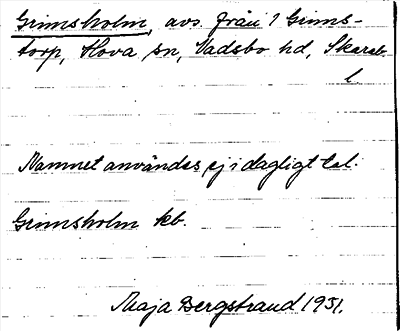 Grimsholm, avs. från 1 Grims-
torp, Hova sn, Vadsbo hd, Skarab.
l
Namnet användes ej i dagligt tal.
Grimsholm kb.
Maja Bergstrand 1931.